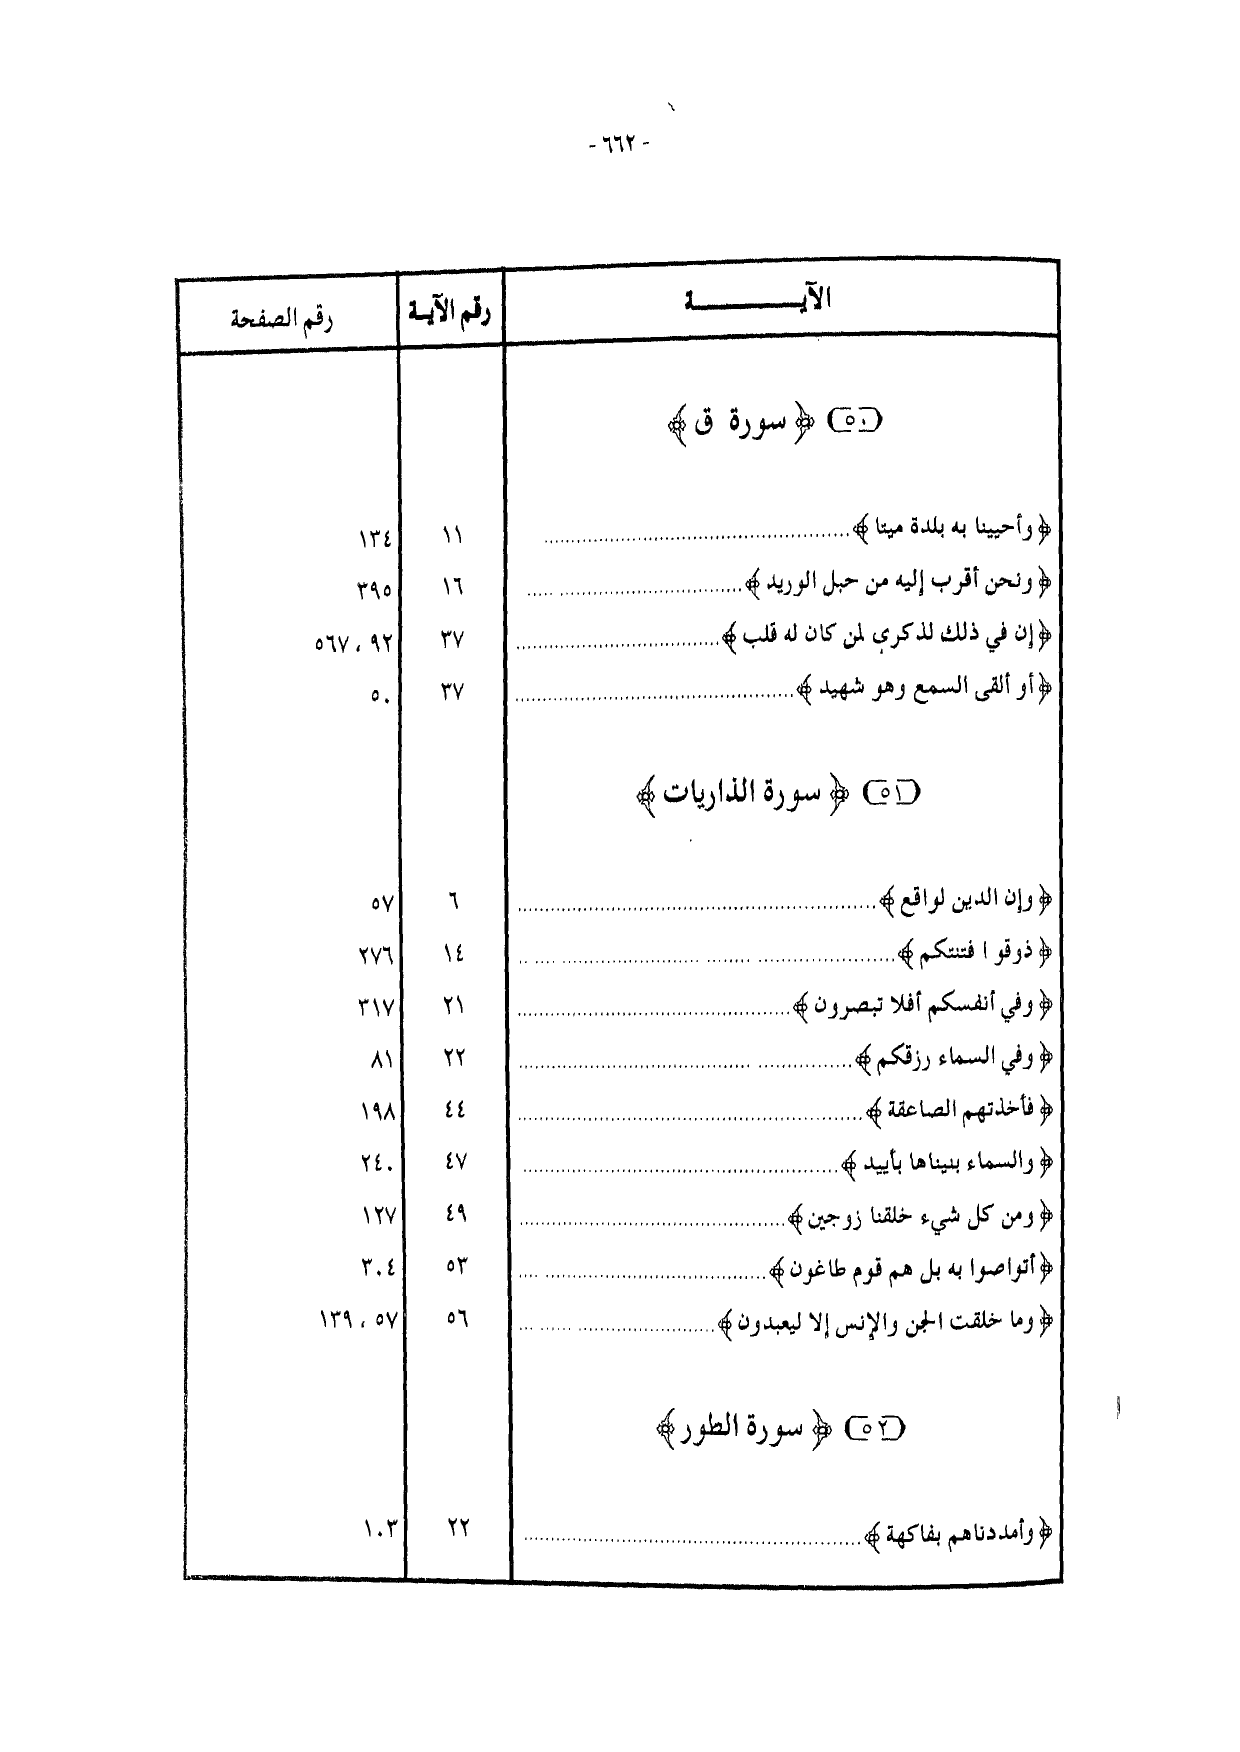 - ٦٦٢ -
الآيــــــــــة رقم الآيـة رقم الصفحة
(٥٠) ﴿ سورة ق ﴾
﴿ وأحيينا به بلدة ميتا ﴾ ........ ١١ ١٣٤
﴿ ونحن أقرب إليه من حبل الوريد ﴾ ........ ١٦ ٣٩٥
﴿ إن في ذلك لذكرى لمن كان له قلب ﴾ ........ ٣٧ ٩٢ ، ٥٦٧
﴿ أو ألقى السمع وهو شهيد ﴾ ........ ٣٧ ٥٠
(٥١) ﴿ سورة الذاريات ﴾
﴿ وإن الدين لواقع ﴾ ........ ٦ ٥٧
﴿ ذوقوا فتنتكم ﴾ ........ ١٤ ٢٧٦
﴿ وفي أنفسكم أفلا تبصرون ﴾ ........ ٢١ ٣١٧
﴿ وفي السماء رزقكم ﴾ ........ ٢٢ ٨١
﴿ فأخذتهم الصاعقة ﴾ ........ ٤٤ ١٩٨
﴿ والسماء بنيناها بأييد ﴾ ........ ٤٧ ٢٤٠
﴿ ومن كل شيء خلقنا زوجين ﴾ ........ ٤٩ ١٢٧
﴿ أتواصوا به بل هم قوم طاغون ﴾ ........ ٥٣ ٣٠٤
﴿ وما خلقت الجن والإنس إلا ليعبدون ﴾ ........ ٥٦ ٥٧ ، ١٣٩
(٥٢) ﴿ سورة الطور ﴾
﴿ وأمددناهم بفاكهة ﴾ ........ ٢٢ ١٠٣